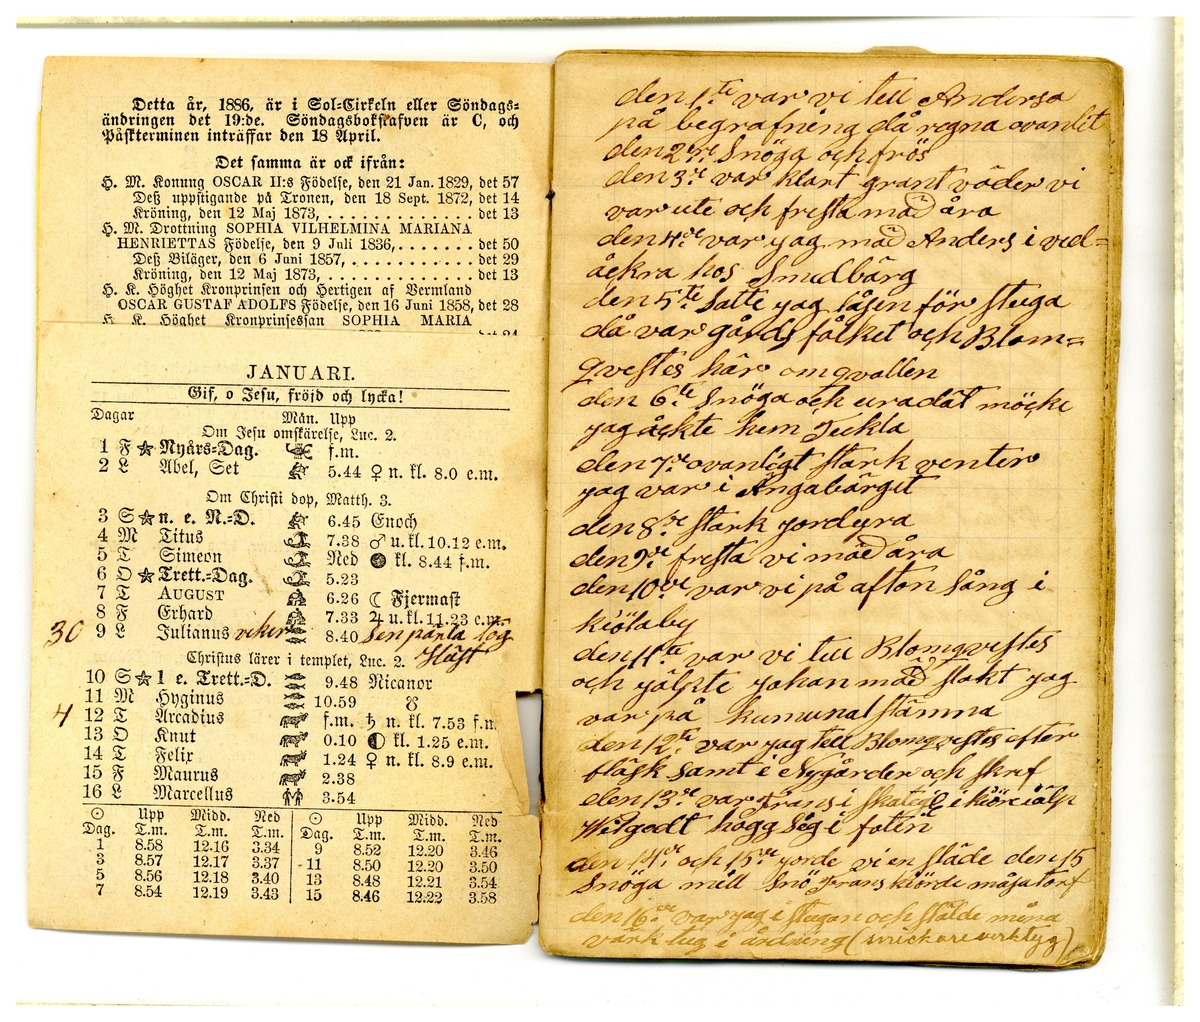 Detta år, 1886, är i Sol-Cirkeln eller Söndags-
ändringen det 19:de. Söndagsbokstafven är C, och
Påskterminen inträffar den 18 April.
Det samma är ock ifrån:
H. M. Konung OSCAR II:s Födelse, den 21 Jan. 1829, det 57
Deß uppstigande på Tronen, den 18 Sept. 1872, det 14
Kröning, den 12 Maj 1873, . . . . . . . . . . . . . . det 13
H. M. Drottning SOPHIA VILHELMINA MARIANA
HENRIETTAS Födelse, den 9 Juli 1836, . . . . . . . det 50
Deß Biläger, den 6 Juni 1857, . . . . . . . . . . . . det 29
Kröning, den 12 Maj 1873, . . . . . . . . . . . . . . det 13
H. K. Höghet Kronprinsen och Hertigen af Vermland
OSCAR GUSTAF ADOLFS Födelse, den 16 Juni 1858, det 28
H. K. Höghet Kronprinsessan SOPHIA MARIA
JANUARI.
Gif, o Jesu, fröjd och lycka!
Dagar Mån. Upp
Om Jesu omskärelse, Luc. 2.
1 F ☆ Nyårs-Dag. f.m.
2 L Abel, Set 5.44 ♀ n. kl. 8.0 e.m.
Om Christi dop, Matth. 3.
3 S ☆ n. e. N.-D. 6.45 Enoch
4 M Titus 7.38 ♂ u. kl. 10.12 e.m.
5 T Simeon Ned ● kl. 8.44 f.m.
6 O ☆ Trett.-Dag. 5.23
7 T AUGUST 6.26 ☾ Fjermast
8 F Erhard 7.33 ♃ u. kl. 11.23 e.m.
30 9 L Julianus 8.40 den pärla tog
Häst
Christus lärer i templet, Luc. 2.
10 S ☆ 1 e. Trett.-D. 9.48 Nicanor
11 M Hyginus 10.59 ☋
4 12 T Arcadius f.m. ♄ n. kl. 7.53 f.m.
13 O Knut 0.10 ◐ kl. 1.25 e.m.
14 T Felix 1.24 ♀ n. kl. 8.9 e.m.
15 F Maurus 2.38
16 L Marcellus 3.54
☉ Upp Midd. Ned ☉ Upp Midd. Ned
Dag. T.m. T.m. T.m. Dag. T.m. T.m. T.m.
1 8.58 12.16 3.34 9 8.52 12.20 3.46
3 8.57 12.17 3.37 11 8.50 12.20 3.50
5 8.56 12.18 3.40 13 8.48 12.21 3.54
7 8.54 12.19 3.43 15 8.46 12.22 3.58
den 1te var vi tell Andersa
på begrafning då regna ovanlit
den 2re Snöga och frös
den 3re var klart grant väder vi
var ute och fresta mad åra
den 4de var jag mad Anders i ved=
åckra hos Smedbärg
den 5te Satte jag låsen för stuga
då var gårds fålket och Blom=
qvestes här omqvallen
den 6te Snöga och uradåt möcke
jag åckte hem Teckla
den 7de ovanligt stark venter
jag var i Ängabärget
den 8de stark jordyra
den 9de fresta vi mad åra
den 10de var vi på afton sång i
kiölaby
den 11te var vi tell Blomqvestes
och jälpte johan mäd slakt jag
var på kumunal stämna
den 12te var jag tell Blomqvestes efter
fläsk samt i Nygårder och skref
den 13de var Frans i skategl i kiörciälp
Wilgodt hågg sig i foten
den 14de och 15de jorde vi en släde den 15
Snöga mell Snö Frans kiörde måsatorf
den 16de var jag i stugan och stälde mina
värk tug i årdning (snickareverktyg)